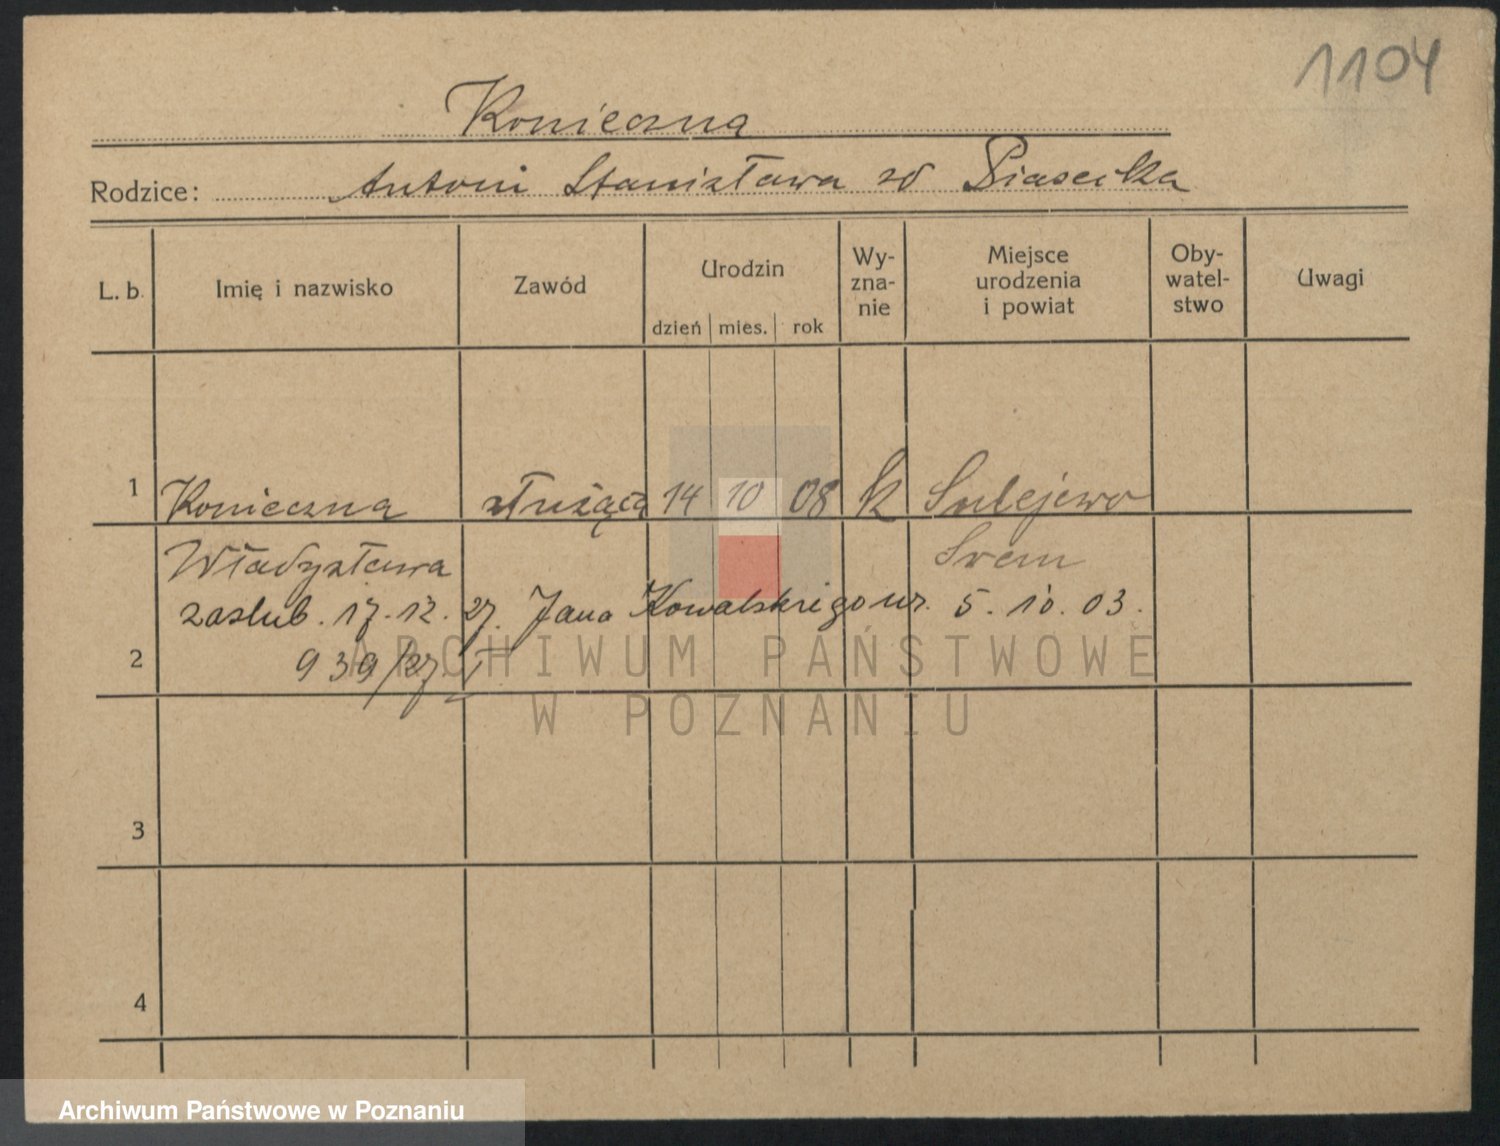 1104
Konieczna
Rodzice: Antoni Stanisława zd Piasecka
L. b. Imię i nazwisko Zawód Urodzin dzień mies. rok Wy-zna-nie Miejsce urodzenia i powiat Oby-watel-stwo Uwagi
1 Konieczna służąca 14 10 08 k Sulejewo
Władysława Srem
zaslub. 17. 12. 27. Jana Kowalskiego ur. 5. 10. 03.
2 939/27 I
ARCHIWUM PAŃSTWOWE
W POZNANIU
3
4
Archiwum Państwowe w Poznaniu